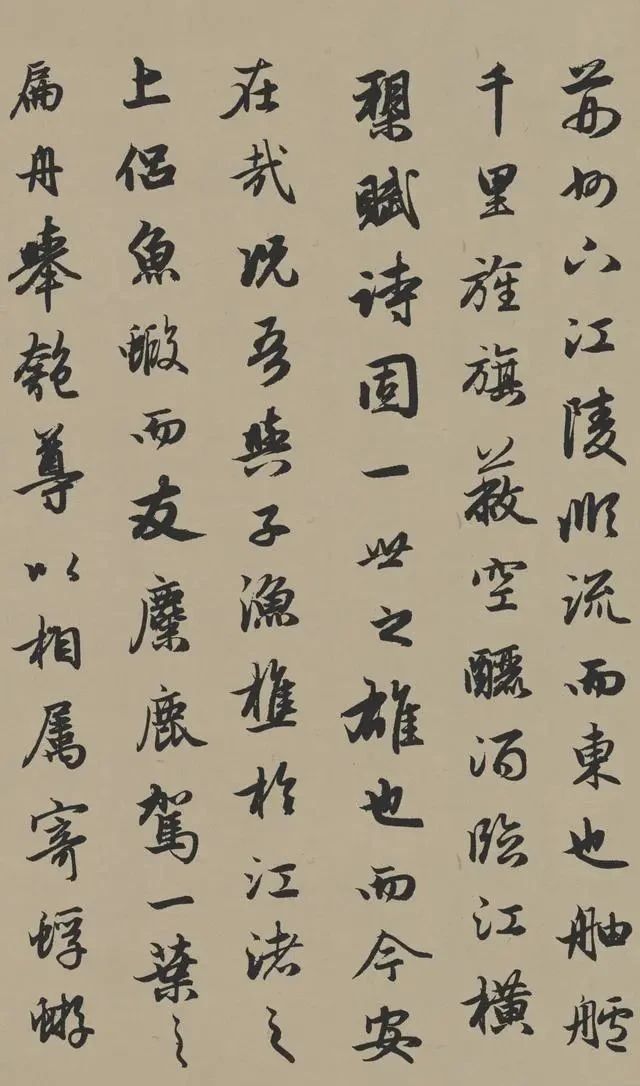 荊州下江陵順流而東也舳艫
千里旌旗蔽空釃酒臨江橫
槊賦詩固一世之雄也而今安
在哉況吾與子漁樵於江渚之
上侶魚蝦而友麋鹿駕一葉之
扁舟舉匏尊以相属寄蜉蝣